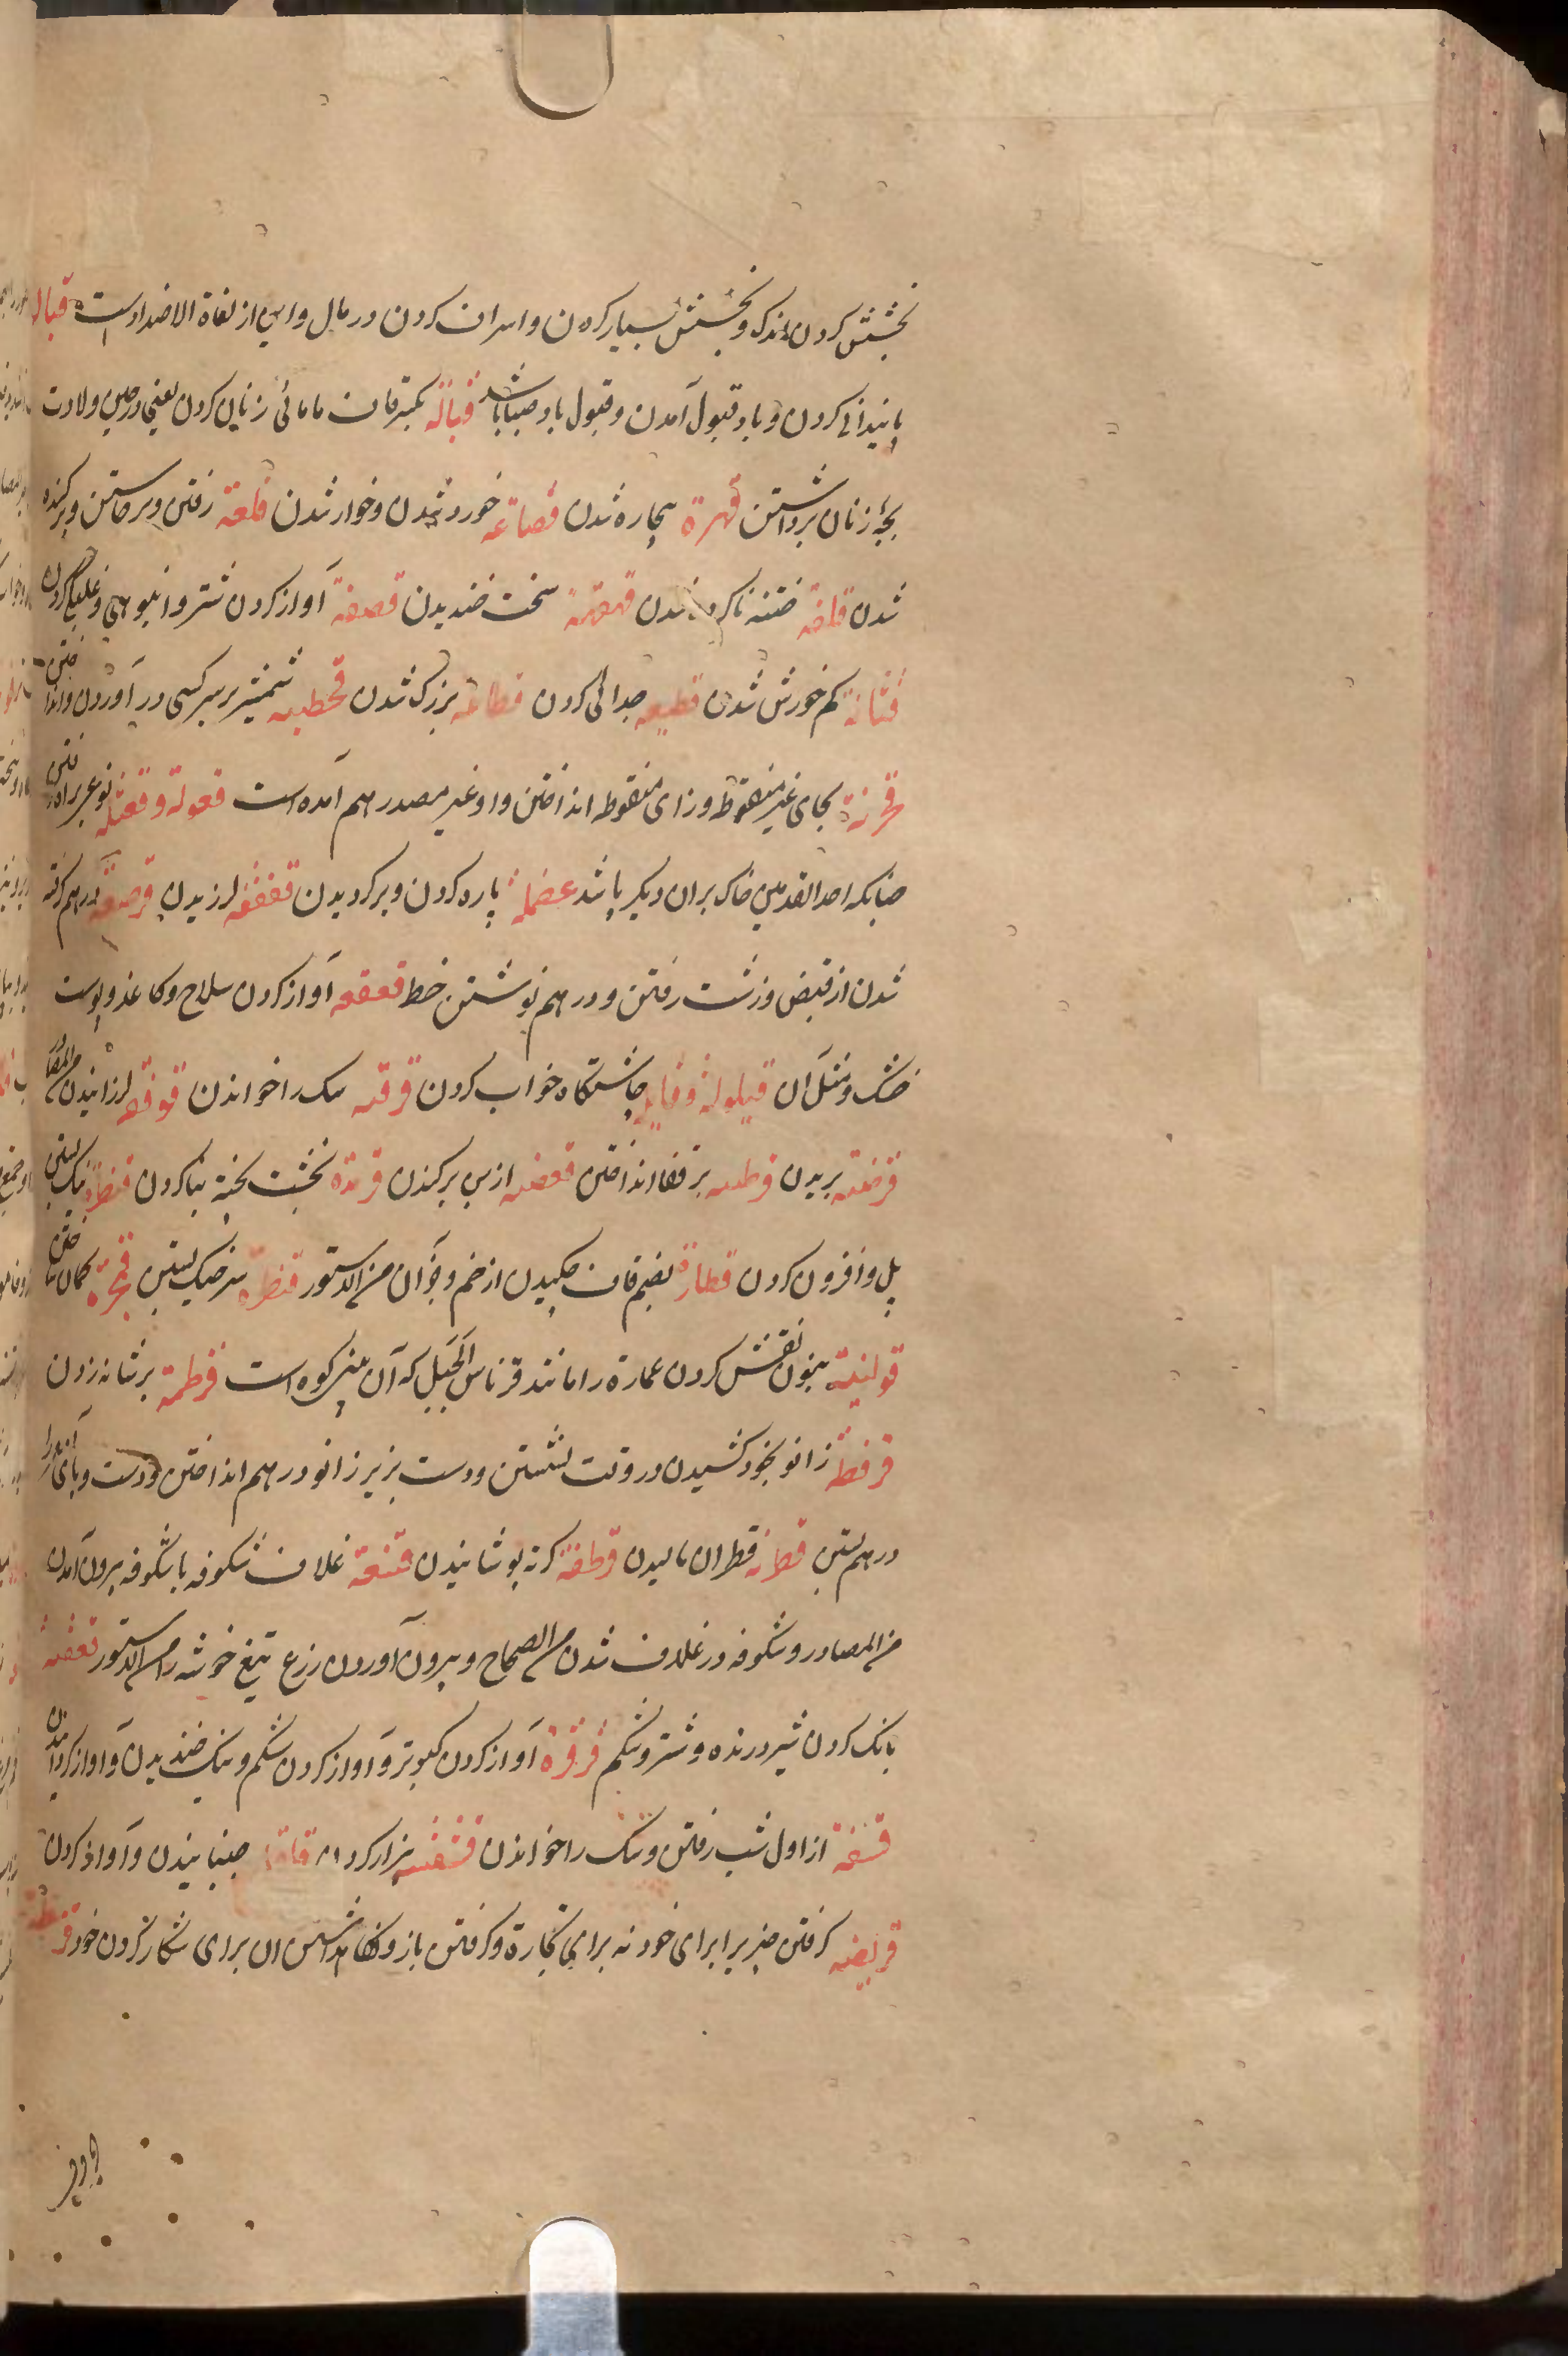 بخشش کردن اندک و بخشش بسیار کردن و اسراف کردن در مال و این از لغاة الاضدادست قباله
پایندانی کردن و باد قبول آمدن و قبول باد صبا باشد قبالة بکسر قاف مامائی زنان کردن یعنی در حین ولادت
بچهٔ زنان برداشتن قهرة بیچاره شدن قصاعه خورد شدن و خوار شدن قلعة رفتن و برخاستن و برکنده
شدن قلفه ختنه ناکرده شدن قهقهة سخت خندیدن قصفة آواز کردن شتر و انبوهی و غلبگی کردن
قتانة کم خورش شدن قطیعه جدائی کردن قطاعه بزرگ شدن قحطبه شمشیر بر سر کسی در آوردن و انداختن
قحزنة بحای غیر منقوطه و زای منقوطه انداختن و او غیر مصدر هم آمده است قعولة و قعثلة نوعی براه رفتن
چنانکه احد القدمین خاک بران دیگر پاشد عضلة پاره کردن و برگردیدن قفقفه لرزیدن قرصعة درهم گرفته
شدن از قبض و زشت رفتن و درهم نوشتن خط قعقعه آواز کردن سلاح و کاغذ و پوست
خشک و مثل آن قیلولة و قایله چاشتگاه خواب کردن قرقسه سک را خواندن قوقفه لرزانیدن من المصادر
قرضبه بریدن قرطبه بر قفا انداختن قعضبه از بن برکندن قرمدة بخشت پخته بنا کردن قنطرة نیک بستن
پل و افزون کردن قطارة بضم قاف چکیدن از خم و جز آن من الدستور قمطرة سر خیک بستن قحرة کمان ساختن
قولنیة بنون نقش کردن عمارة را مانند قرناس الجبل که آن بینی کوه است قرطمة بر نشانه زدن
قرفطة زانو بخود کشیدن در وقت نشستن و دست بزیر زانو درهم انداختن و دست و پای
درهم بستن قطرانه قطران مالیدن قرطفة کرته پوشانیدن قنبعة غلاف شکوفه با شکوفه بیرون آمدن
من المصادر و شکوفه در غلاف شدن من الصحاح و بیرون آوردن زرع تیغ خوشه را من الدستور
بانک کردن شیر درنده و شتر و شکم قرقرة آواز کردن کبوتر و آواز کردن شکم و نیک خندیدن و آواز
از اول شب رفتن و سک را خواندن قشقشه بیزار کردن قلقلة جنبانیدن و آواز کردن
قریضه گرفتن چیزیرا برای خود نه برای تجارة و گرفتن باز و نگاهداشتن آن برای شکار کردن خود